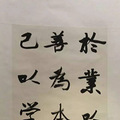 於業
善為本
己以学